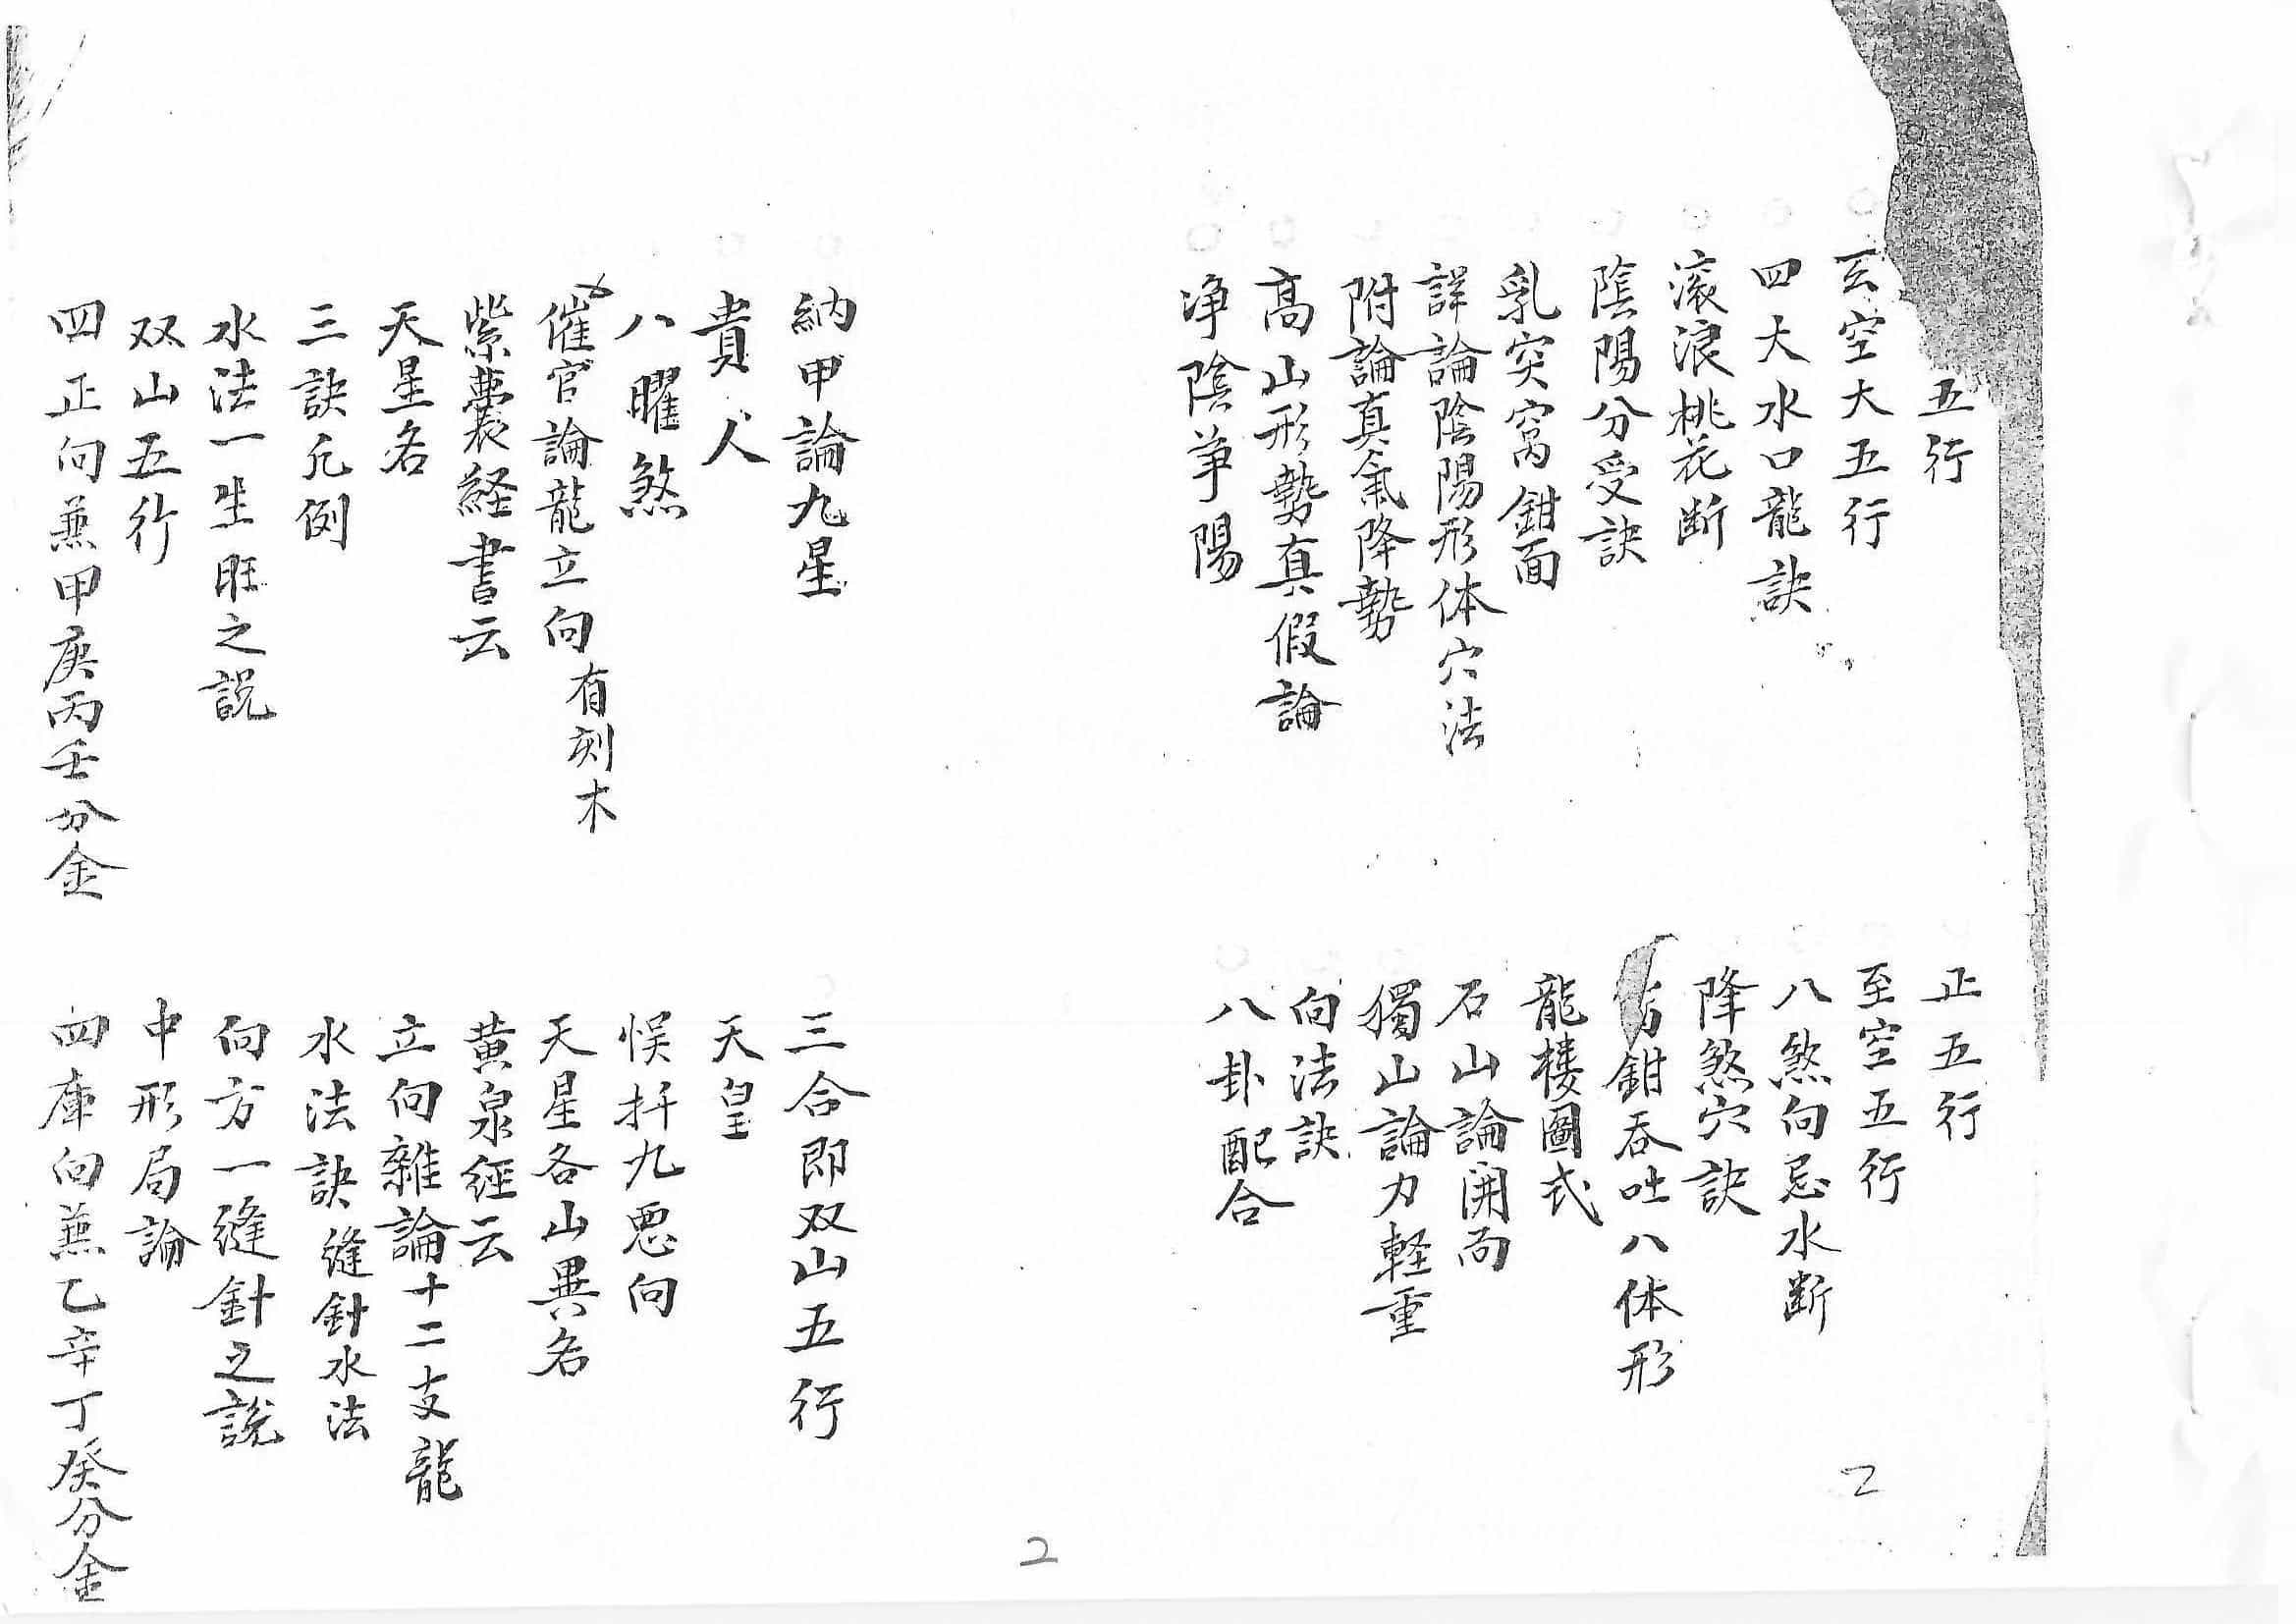 五行
正五行
玄空大五行
至空五行
四大水口龍訣
八煞向忌水断
滚浪桃花断
降煞穴訣
陰陽分受訣
鉗吞吐八体形
乳突窩鉗面
龍楼圖式
詳論陰陽形体穴法
石山論開面
附論真氣降勢
獨山論力軽重
高山形勢真假論
向法訣
净陰争陽
八卦配合
2
納甲論九星
三合即双山五行
貴人
天皇
八曜煞
悞扦九悪向
催官論龍立向有刻木
天星各山異名
紫囊経書云
黄泉經云
天星名
立向雜論十二支龍
三訣凡例
水法訣縫針水法
水法一生旺之説
向方一縫針之説
双山五行
中形局論
四正向兼甲庚丙壬分金
四庫向兼乙辛丁癸分金
2